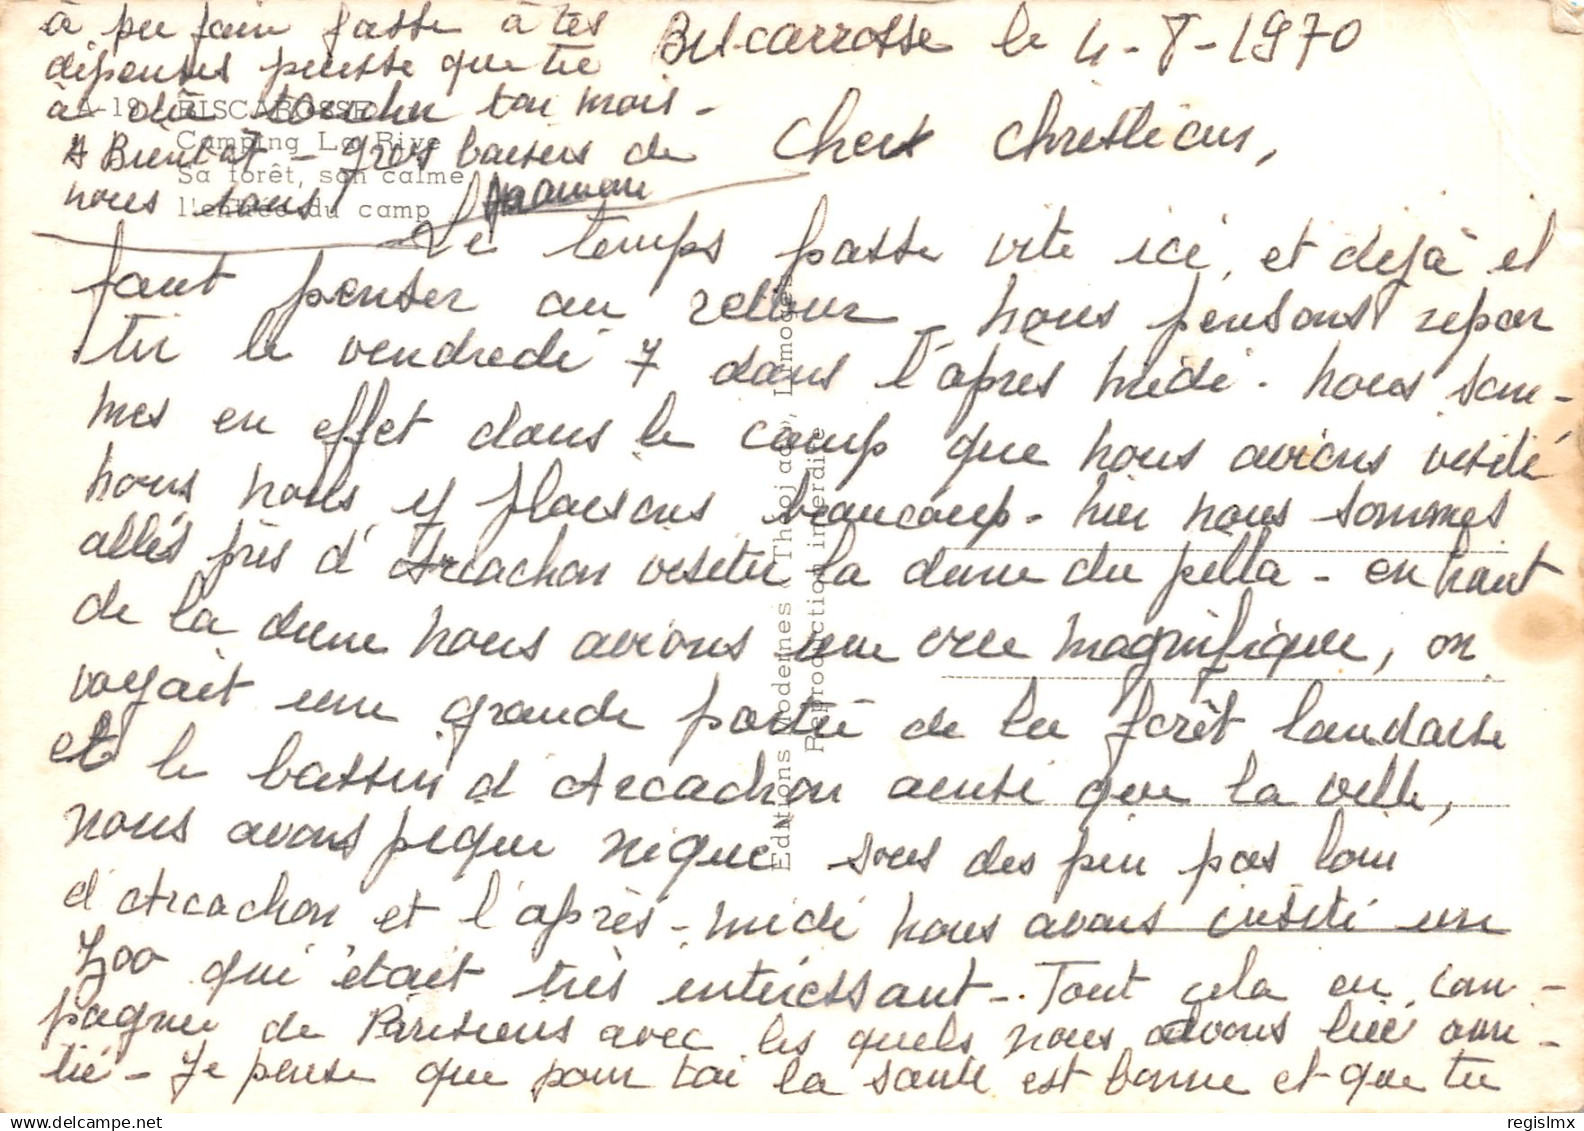 Biscarrosse le 4-8-1970
Cher Christian,
Le temps passe vite ici, et dejà il
faut penser au retour - nous pensons repar
tir le vendredi 7 dans l'après midi. nous som-
mes en effet dans le camp que nous avions visité
nous nous y plaisons beaucoup - hier nous sommes
allés près d'Arcachon visiter la dune du pilla - en haut
de la dune nous avions une vue magnifique, on
voyait une grande partie de la forêt landaise
et le bassin d'Arcachon ainsi que la ville,
nous avons pique nique sous des pin pas loin
d'Arcachon et l'après-midi nous avons visité un
zoo qui était très intéressant - Tout cela en com-
pagnie de Parisiens avec les quels nous avons lié ami-
tié - Je pense que pour toi la santé est bonne et que tu
à pu fair fasse à tes
dépenses puisse que tu
à dû toucher ton mois -
A Bientôt - gros baisers de
nous tous
Maman
A-19 - BISCAROSSE
Camping La Rive
Sa forêt, son calme
l'entrée du camp
Editions Modernes Théojac, Limoges
Reproduction interdite